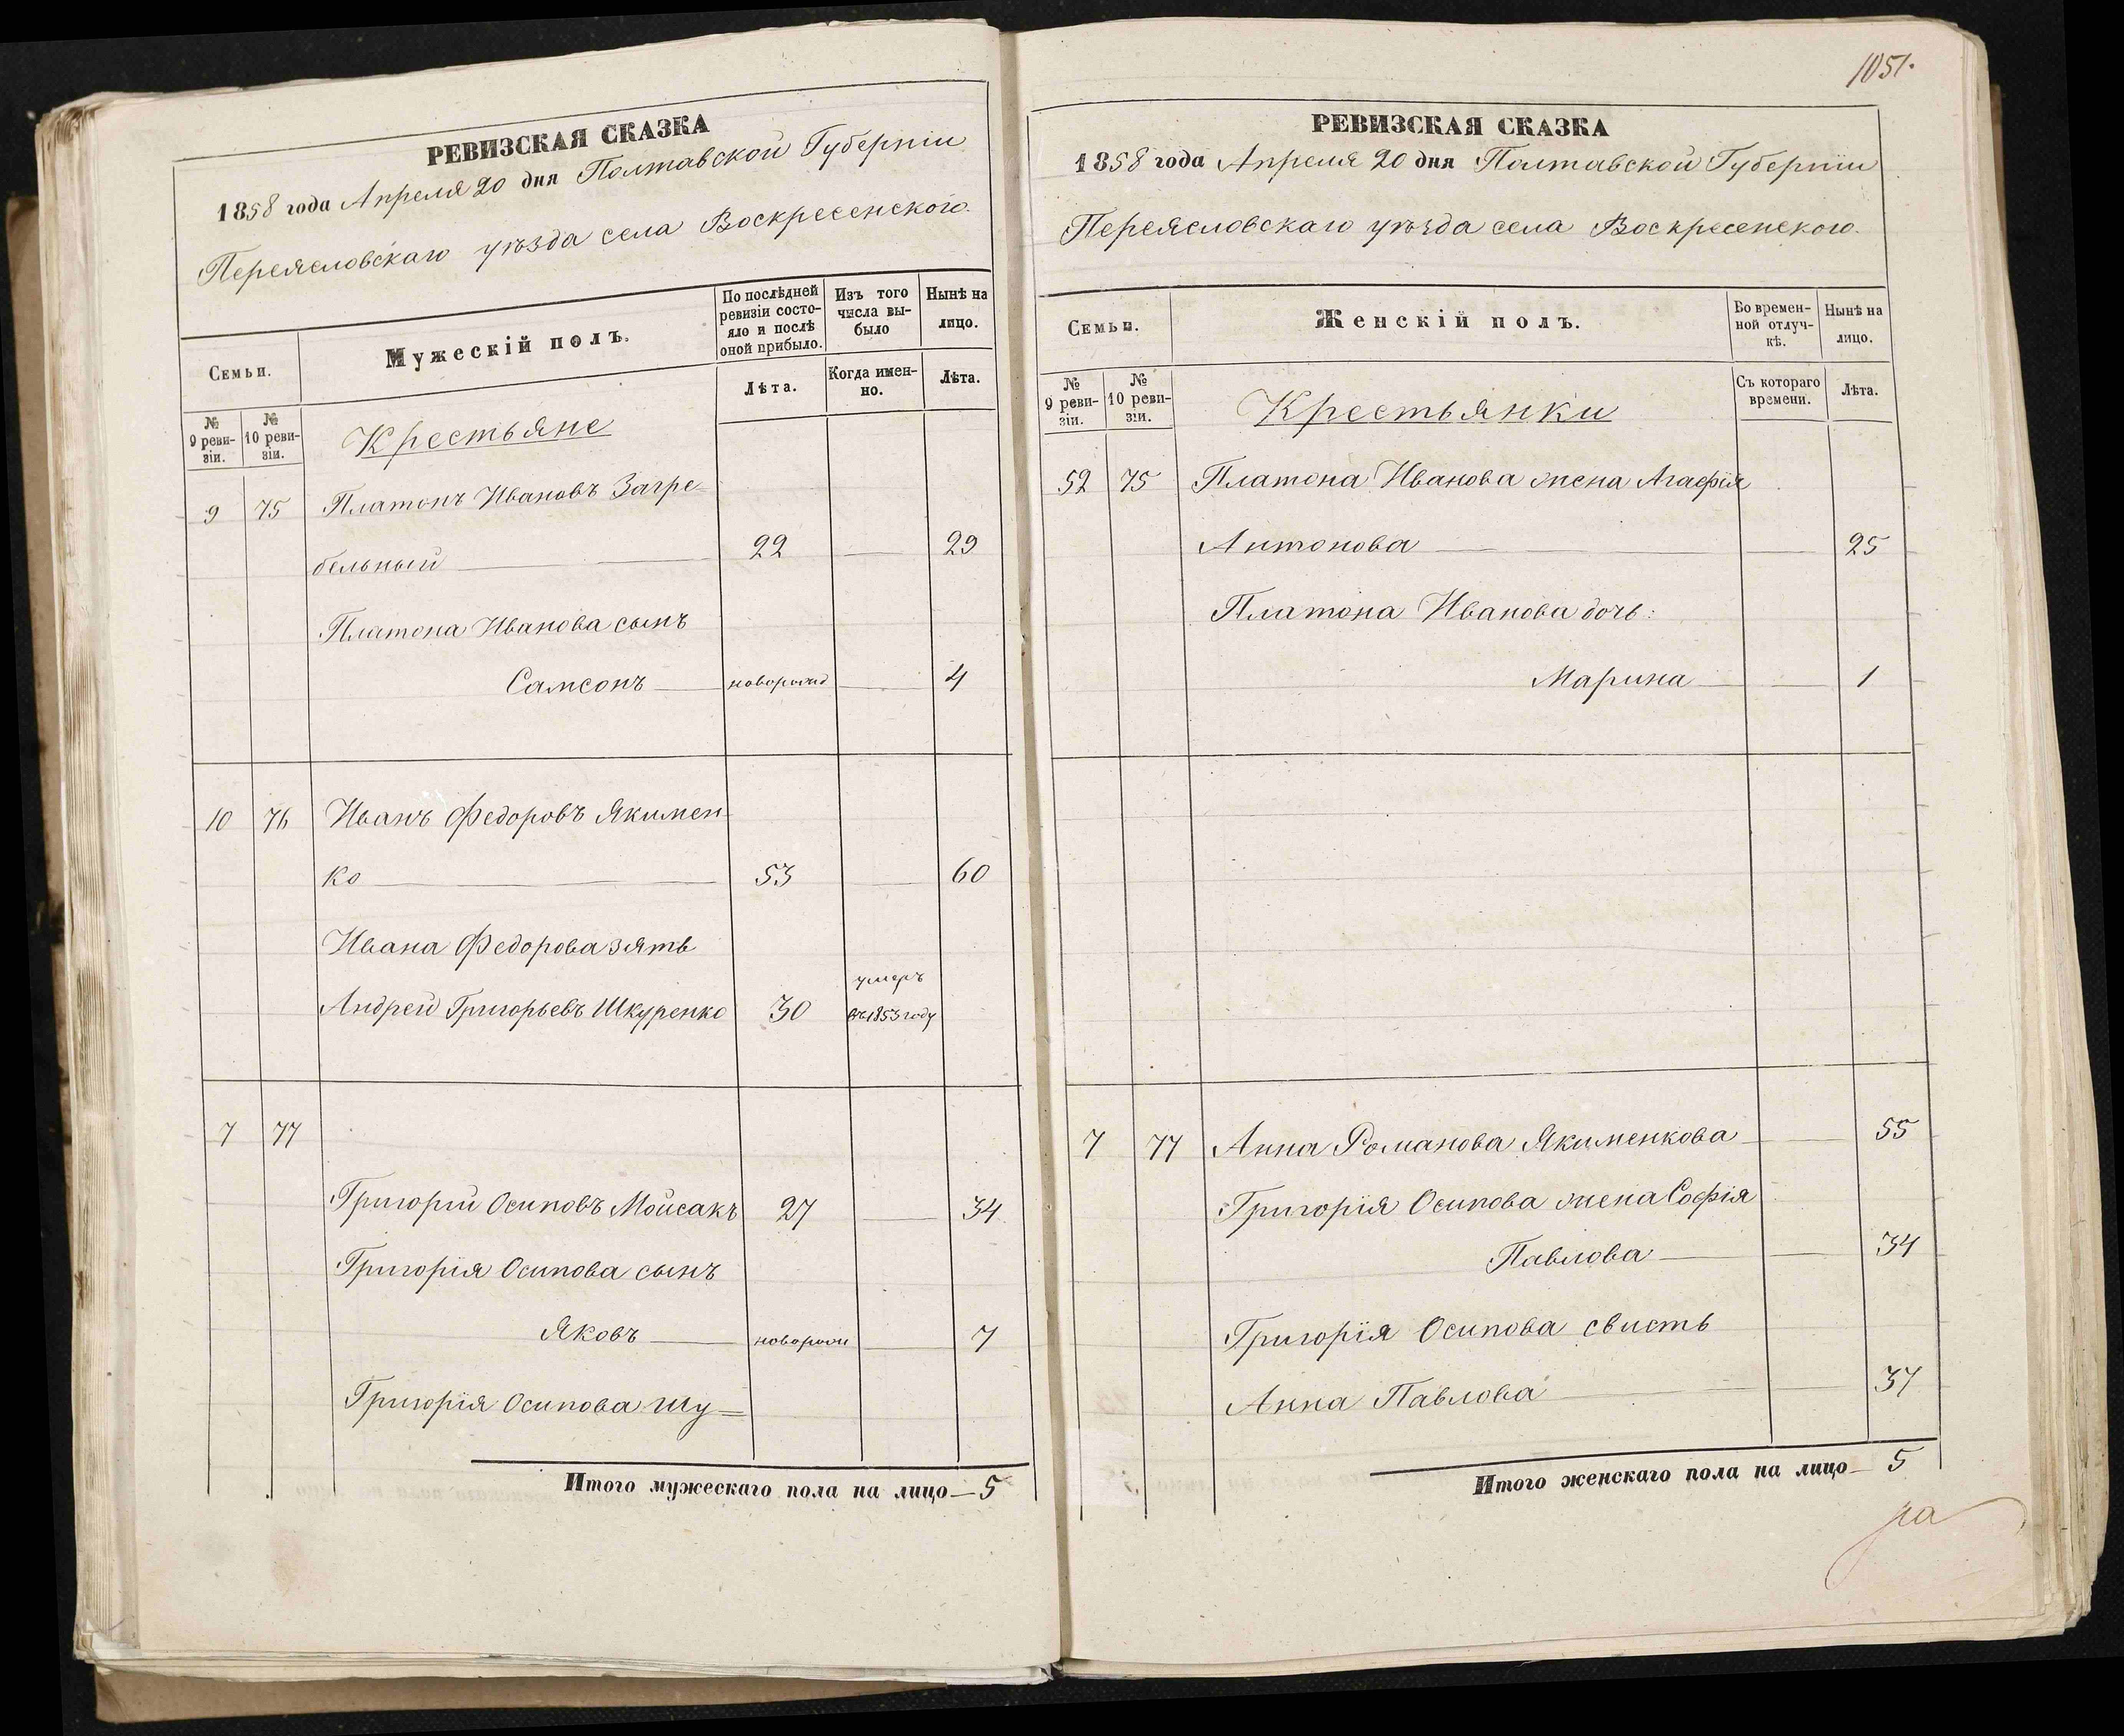 РЕВИЗСКАЯ СКАЗКА
1858 года Апреля 20 дня Полтавской Губерніи
Переясловскаго уѣзда села Воскресенского.
Семьи.
Мужескій полъ.
По послѣдней ревизіи состояло и послѣ оной прибыло.
Изъ того числа выбыло
Нынѣ на лицо.
№ 9 ревизіи.
№ 10 ревизіи.
Лѣта.
Когда именно.
Лѣта.
Крестьяне
9 75 Платонъ Ивановъ Загре-
бельный — 22 — 29
Платона Иванова сынъ
Самсонъ — новорожд — 4
10 76 Иванъ Федоровъ Якимен-
ко — 53 — 60
Ивана Федорова зять
Андрей Григорьевъ Шкуренко 30 умеръ въ 1853 году
7 77
Григорій Осиповъ Мойсакъ 27 — 34
Григорія Осипова сынъ
Яковъ — новорож — 7
Григорія Осипова шу=
Итого мужескаго пола на лицо — 5
1051.
РЕВИЗСКАЯ СКАЗКА
1858 года Апреля 20 дня Полтавской Губерніи
Переясловскаго уѣзда села Воскресенского.
Семьи.
Женскій полъ.
Во временной отлучкѣ.
Нынѣ на лицо.
№ 9 ревизіи.
№ 10 ревизіи.
Съ котораго времени.
Лѣта.
Крестьянки
52 75 Платона Иванова жена Агафія
Антонова — — 25
Платона Иванова дочь:
Марина — — 1
7 77 Анна Романова Якименкова — 55
Григорія Осипова жена Софія
Павлова — — 34
Григорія Осипова свисть
Анна Павлова — — 37
Итого женскаго пола на лицо — 5
ра